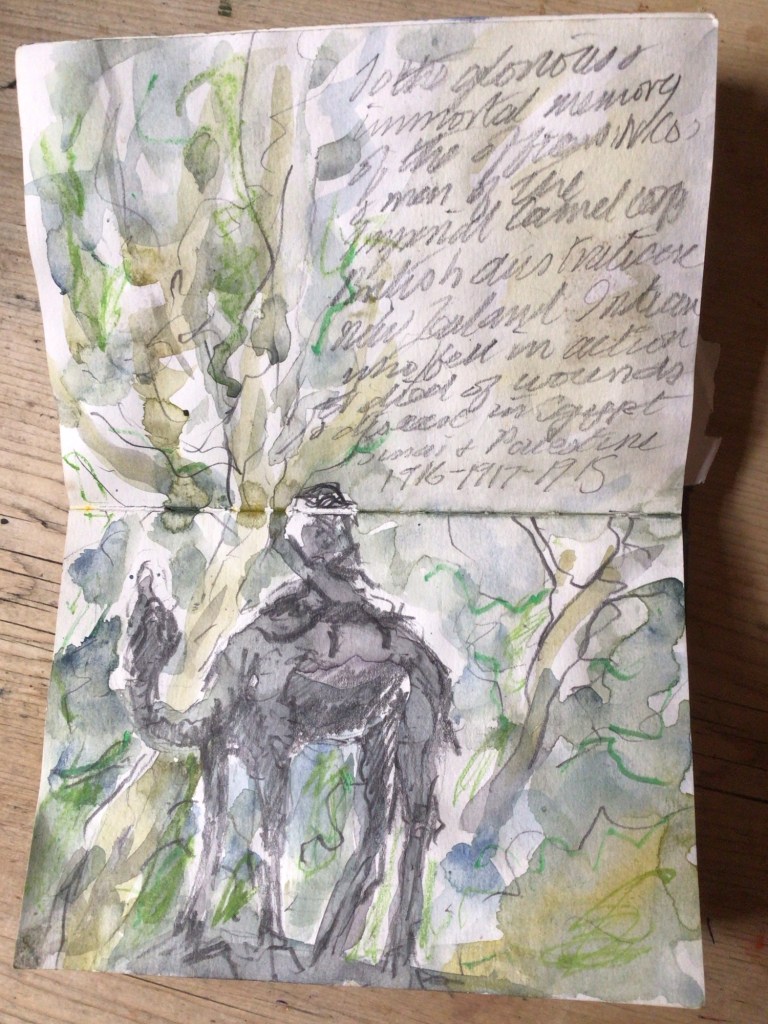 To the glorious &
immortal memory
of the officers, NCOs
& men of the
Imperial Camel corp
British Australian
New Zealand Indian
who fell in action
or died of wounds
& disease in Egypt
Sinai & Palestine
1916-1917-1918